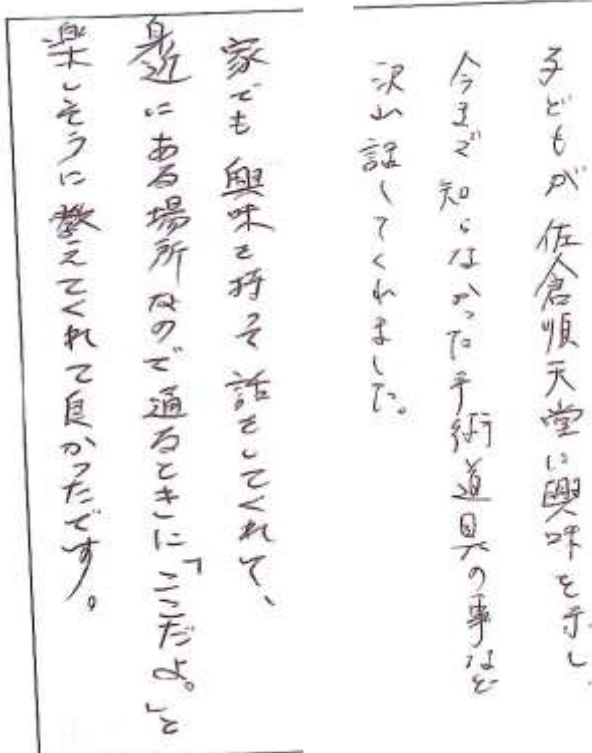 子どもが佐倉順天堂に興味を示し、
今まで知らなかった手術道具の事など
沢山話してくれました。
家でも興味を持って話をしてくれて、
身近にある場所なので通るときに「ここだよ。」と
楽しそうに教えてくれて良かったです。